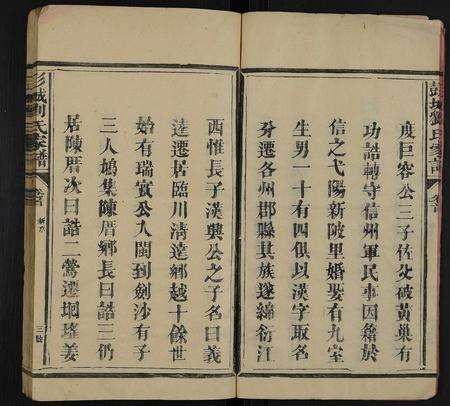 彭城劉氏家譜
卷首
度巨容公三子佐父破黃巢有
功誥轉守信州軍民事因籍於
信之弋陽新陂里婚娶有九室
生男一十有四俱以漢字取名
分遷各州郡縣其族遂綿衍江
西惟長子漢興公之子名曰義
逵遷居臨川清遠鄉越十餘世
始有瑞實公入閩到劍沙有子
三人鳩集陳厝鄉長曰誥三仍
居陳厝次曰誥二鶯遷垌瑤姜
彭城劉氏家譜
卷首
新序
三